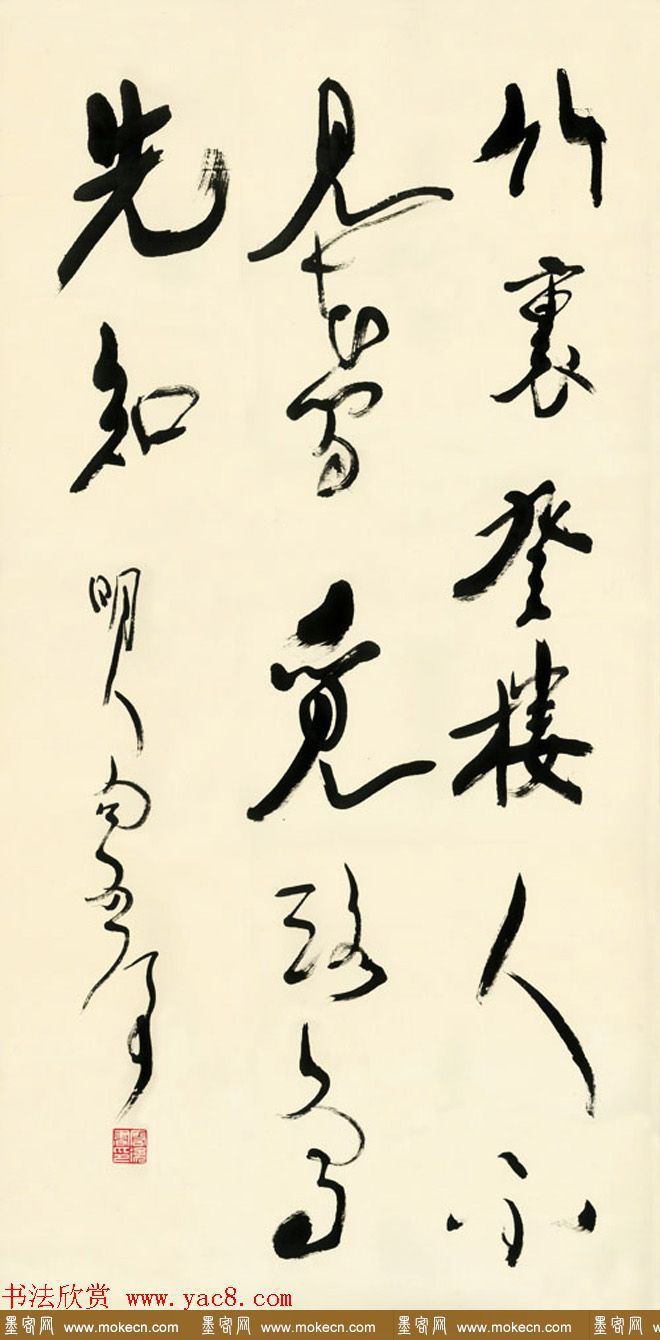 竹裏登樓人不
見花間覓路鳥
先知 明人句
书法欣赏 www.yac8.com
墨客网 www.mokecn.com 墨客网 www.mokecn.com 墨客网 www.mokecn.com